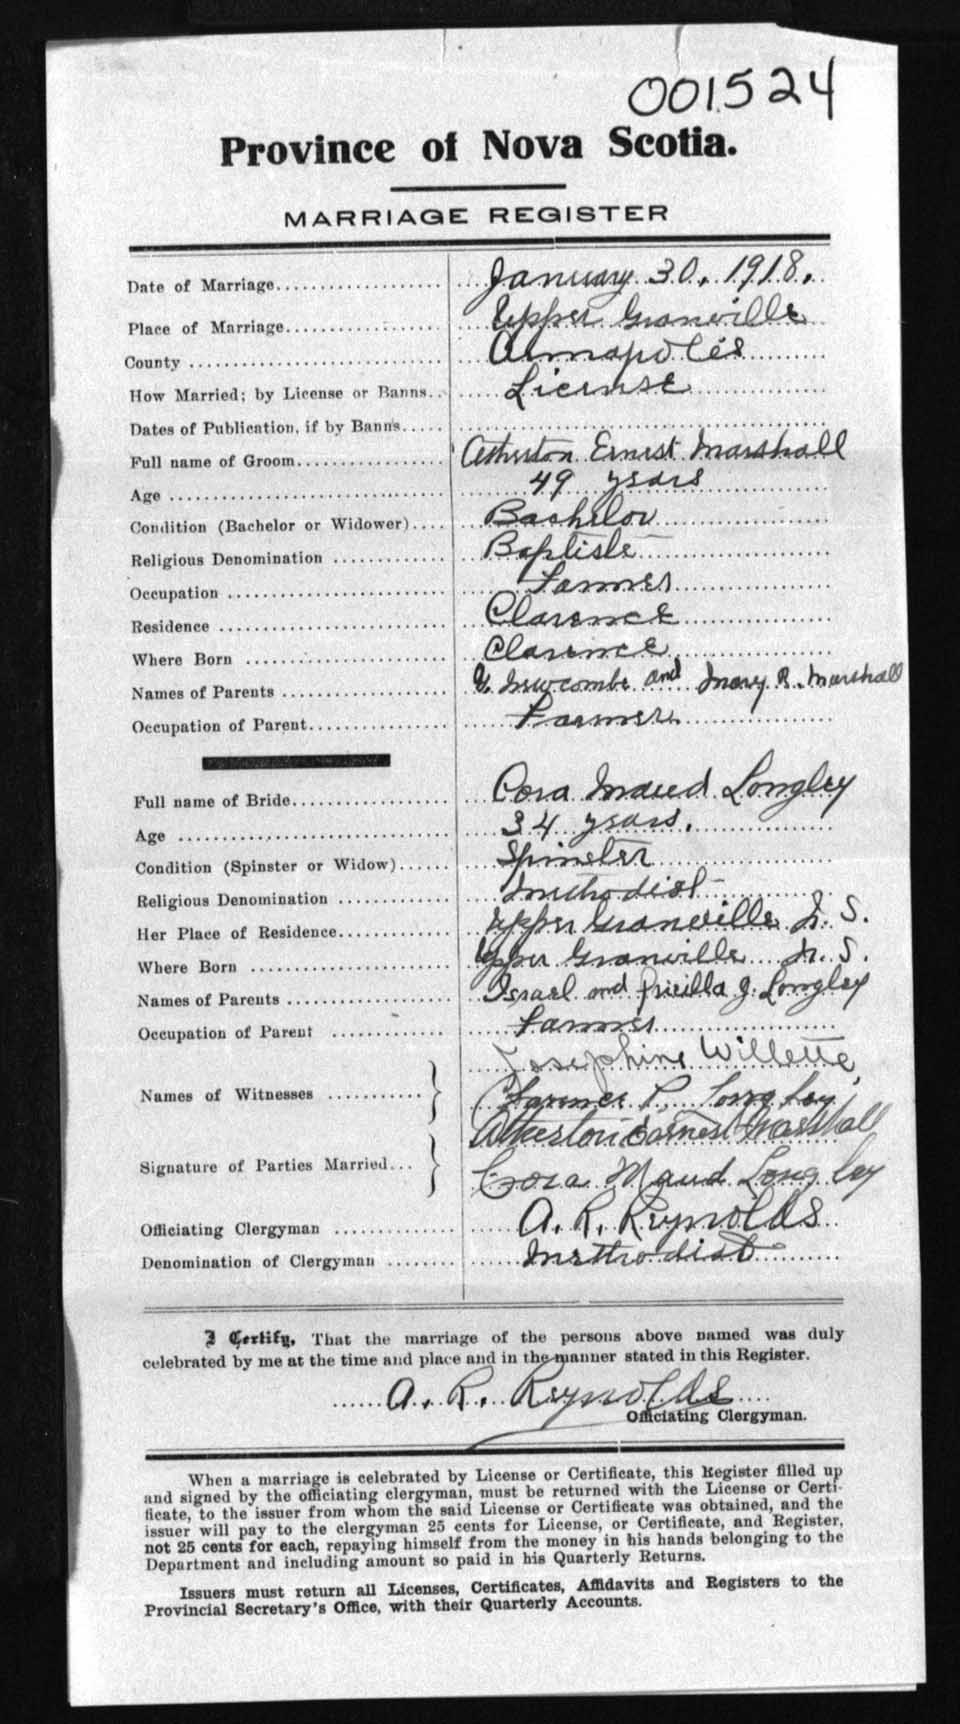 001524
Province of Nova Scotia.
MARRIAGE REGISTER
Date of Marriage January 30, 1918.
Place of Marriage Upper Granville
County Annapolis
How Married; by License or Banns License
Dates of Publication, if by Banns
Full name of Groom Atherton Ernest Marshall
Age 49 years
Condition (Bachelor or Widower) Bachelor
Religious Denomination Baptiste
Occupation Farmer
Residence Clarence
Where Born Clarence
Names of Parents Newcombe and Mary R. Marshall
Occupation of Parent Farmer
Full name of Bride Cora Maud Longley
Age 34 years.
Condition (Spinster or Widow) Spinster
Religious Denomination Methodist
Her Place of Residence Upper Granville N. S.
Where Born Upper Granville N. S.
Names of Parents Israel and Pricilla J. Longley
Occupation of Parent Farmer
Josephine Willette
Names of Witnesses
Clarence P. Longley
Atherton Earnest Marshall
Signature of Parties Married
Cora Maud Longley
Officiating Clergyman A. R. Reynolds
Denomination of Clergyman Methodist
I Certify, That the marriage of the persons above named was duly
celebrated by me at the time and place and in the manner stated in this Register.
A. R. Reynolds
Officiating Clergyman.
When a marriage is celebrated by License or Certificate, this Register filled up
and signed by the officiating clergyman, must be returned with the License or Certi-
ficate, to the issuer from whom the said License or Certificate was obtained, and the
issuer will pay to the clergyman 25 cents for License, or Certificate, and Register,
not 25 cents for each, repaying himself from the money in his hands belonging to the
Department and including amount so paid in his Quarterly Returns.
Issuers must return all Licenses, Certificates, Affidavits and Registers to the
Provincial Secretary's Office, with their Quarterly Accounts.